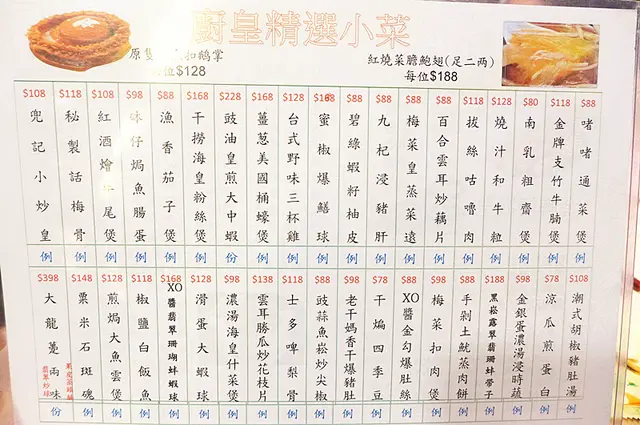 廚皇精選小菜
原隻 扣鵝掌
位$128
紅燒菜膽鮑翅(足二兩)
每位$188
$108 兜記小炒皇 例
$118 秘製話梅骨 例
$108 紅酒燴牛尾煲 例
$98 缽仔焗魚腸蛋 例
$88 漁香茄子煲 例
$168 干撈海皇粉絲煲 例
$228 豉油皇煎大中蝦 份
$168 薑葱美國桶蠔煲 例
$128 台式野味三杯雞 例
$168 蜜椒爆鱔球 例
$88 碧綠蝦籽柚皮 例
$88 九杞浸豬肝 例
$88 梅菜皇蒸菜遠 例
$88 百合雲耳炒藕片 例
$118 拔絲咕嚕肉 例
$128 燒汁和牛粒 例
$80 南乳粗齋煲 例
$118 金牌支竹牛腩煲 例
$88 啫啫通菜煲 例
$398 大龍躉兩味 份
$148 粟米石斑塊 例
$128 煎焗大魚雲煲 例
$118 椒鹽白飯魚 例
$168 XO醬翡翠珊瑚蚌蝦球 例
$128 滑蛋大蝦球 例
$98 濃湯海皇什菜煲 例
$138 雲耳勝瓜炒花枝片 例
$118 士多啤梨骨 例
$88 豉蒜魚崧炒尖椒 例
$98 老干媽香干爆豬肚 例
$78 干煸四季豆 例
$88 XO醬金勾爆肚絲 例
$98 梅菜扣肉煲 例
$88 手剁土魷蒸肉餅 例
$188 黑崧露翡翠珊蚌帶子 例
$98 金銀蛋濃湯浸時蔬 例
$78 涼瓜煎蛋白 例
$108 潮式胡椒豬肚湯 例